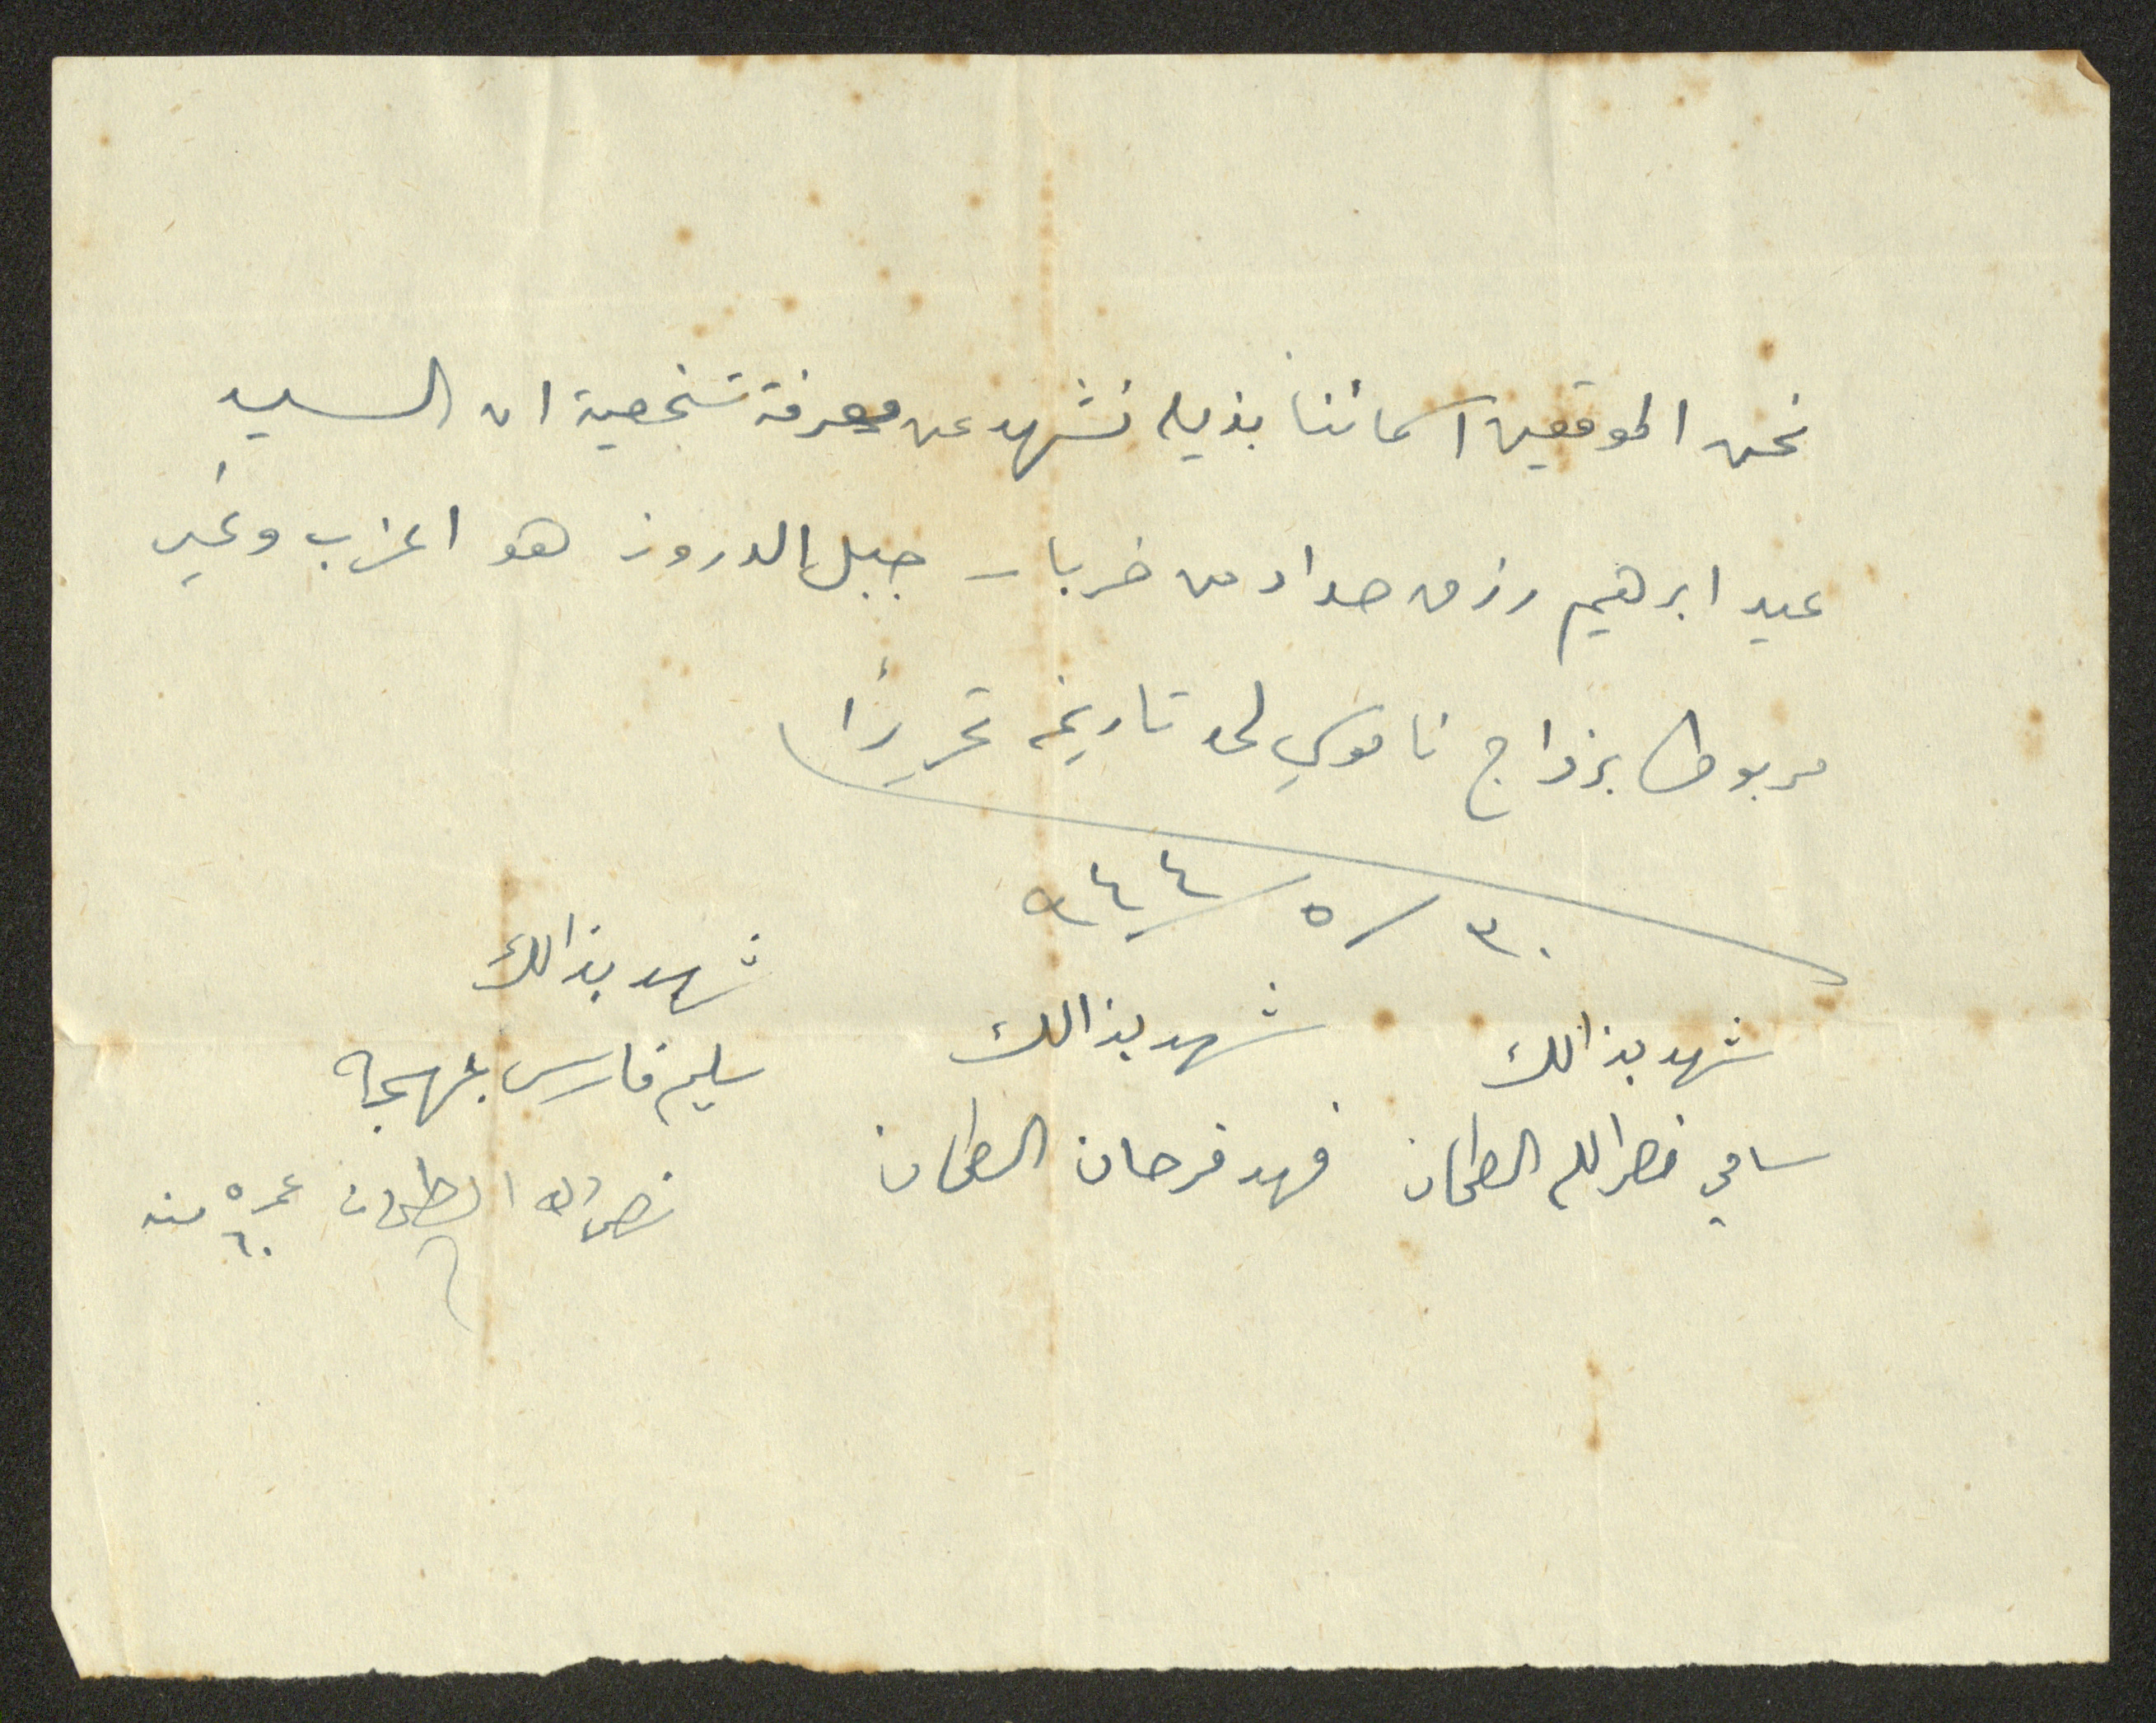 نحن الموقعين اسمائنا بذيله نشهد عن معرفة شخصية ان السيد
عيد ابرهيم رزق حداد من خربا – جبل الدروز هو اعزب وغير
مربوط بزواج ناموسي لحد تاريخه تحريرًا
٣٠ / ٥ / ٩٤٤
شهد بذالك
سامي نصرالله الطحان
شهد بذالك
فهد فرحان الطحان
شهد بذالك
سليم فارس
نصرالله الطحان عمره ٦٠ سنه